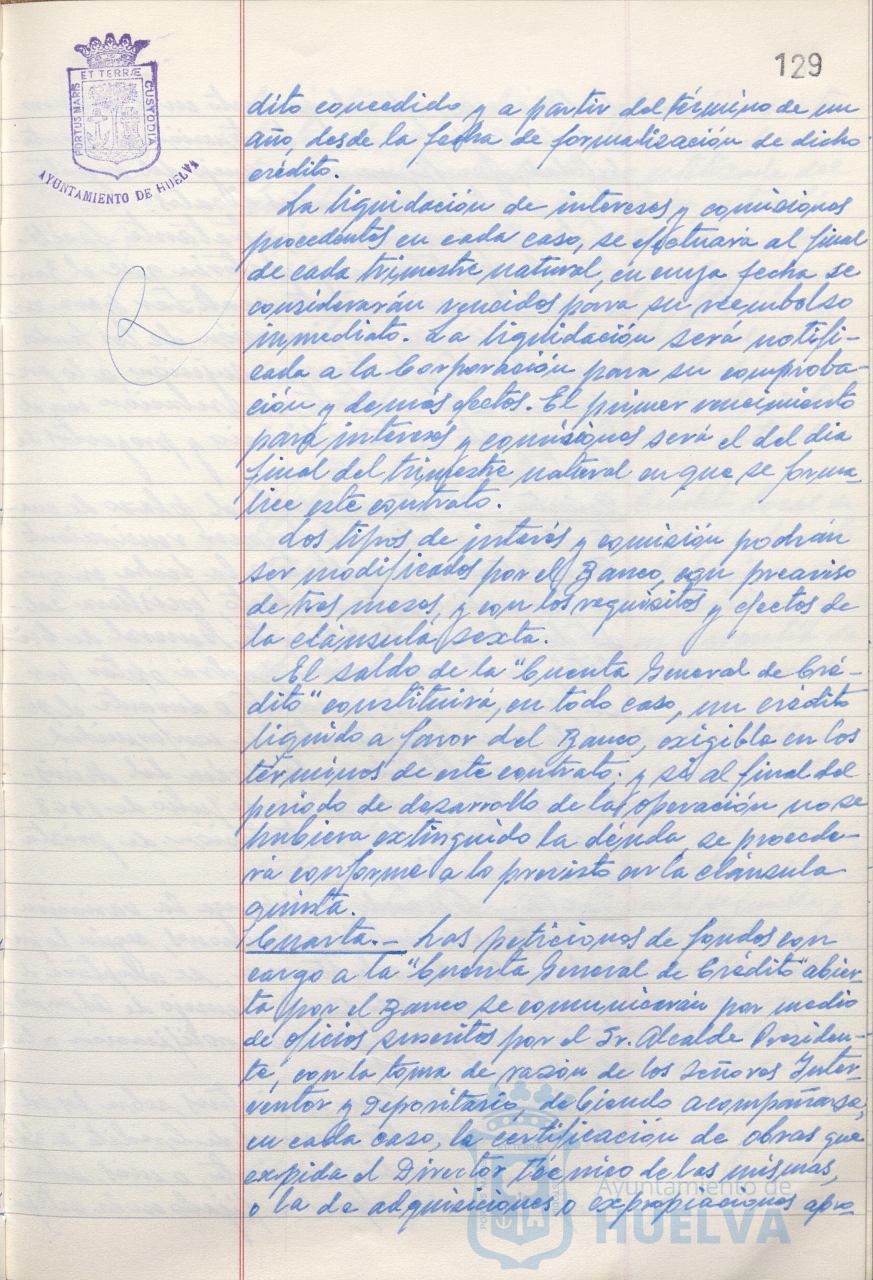 129
PORTUS MARIS
ET TERRÆ
CUSTODIA
AYUNTAMIENTO DE HUELVA
dito concedido y a partir del término de un
año, desde la fecha de formalización de dicho
crédito.
La liquidación de intereses y comisiones
procedentes en cada caso, se efectuará al final
de cada trimestre natural, en cuya fecha se
considerarán vencidos para su reembolso
inmediato. La liquidación será notifi-
cada a la Corporación para su comproba-
ción y demas efectos. El primer vencimiento
para intereses y comisiones será el del dia
final del trimestre natural en que se forma-
lice este contrato.
Los tipos de interés y comisión podrán
ser modificados por el Banco, con preaviso
de tres meses, y con los requisitos y efectos de
la cláusula sexta.
El saldo de la "Cuenta General de Cré-
dito" constituirá, en todo caso, un crédito
líquido a favor del Banco, exigible en los
términos de este contrato. y si al final del
periodo de desarrollo de la operación no se
hubiera extinguido la deuda, se procede-
rá conforme a lo previsto en la cláusula
quinta.
Cuarta.- Las peticiones de fondos con
cargo a la "Cuenta General de Crédito" abier-
ta por el Banco se comunicarán por medio
de oficios suscritos por el Sr. Alcalde Presiden-
te, con la toma de razón de los Señores Inter-
ventor y Depositario, debiendo acompañarse,
en cada caso, la certificación de obras que
expida el Director técnico de las mismas,
o la de adquisiciones o expropiaciones apro-
Ayuntamiento de
HUELVA